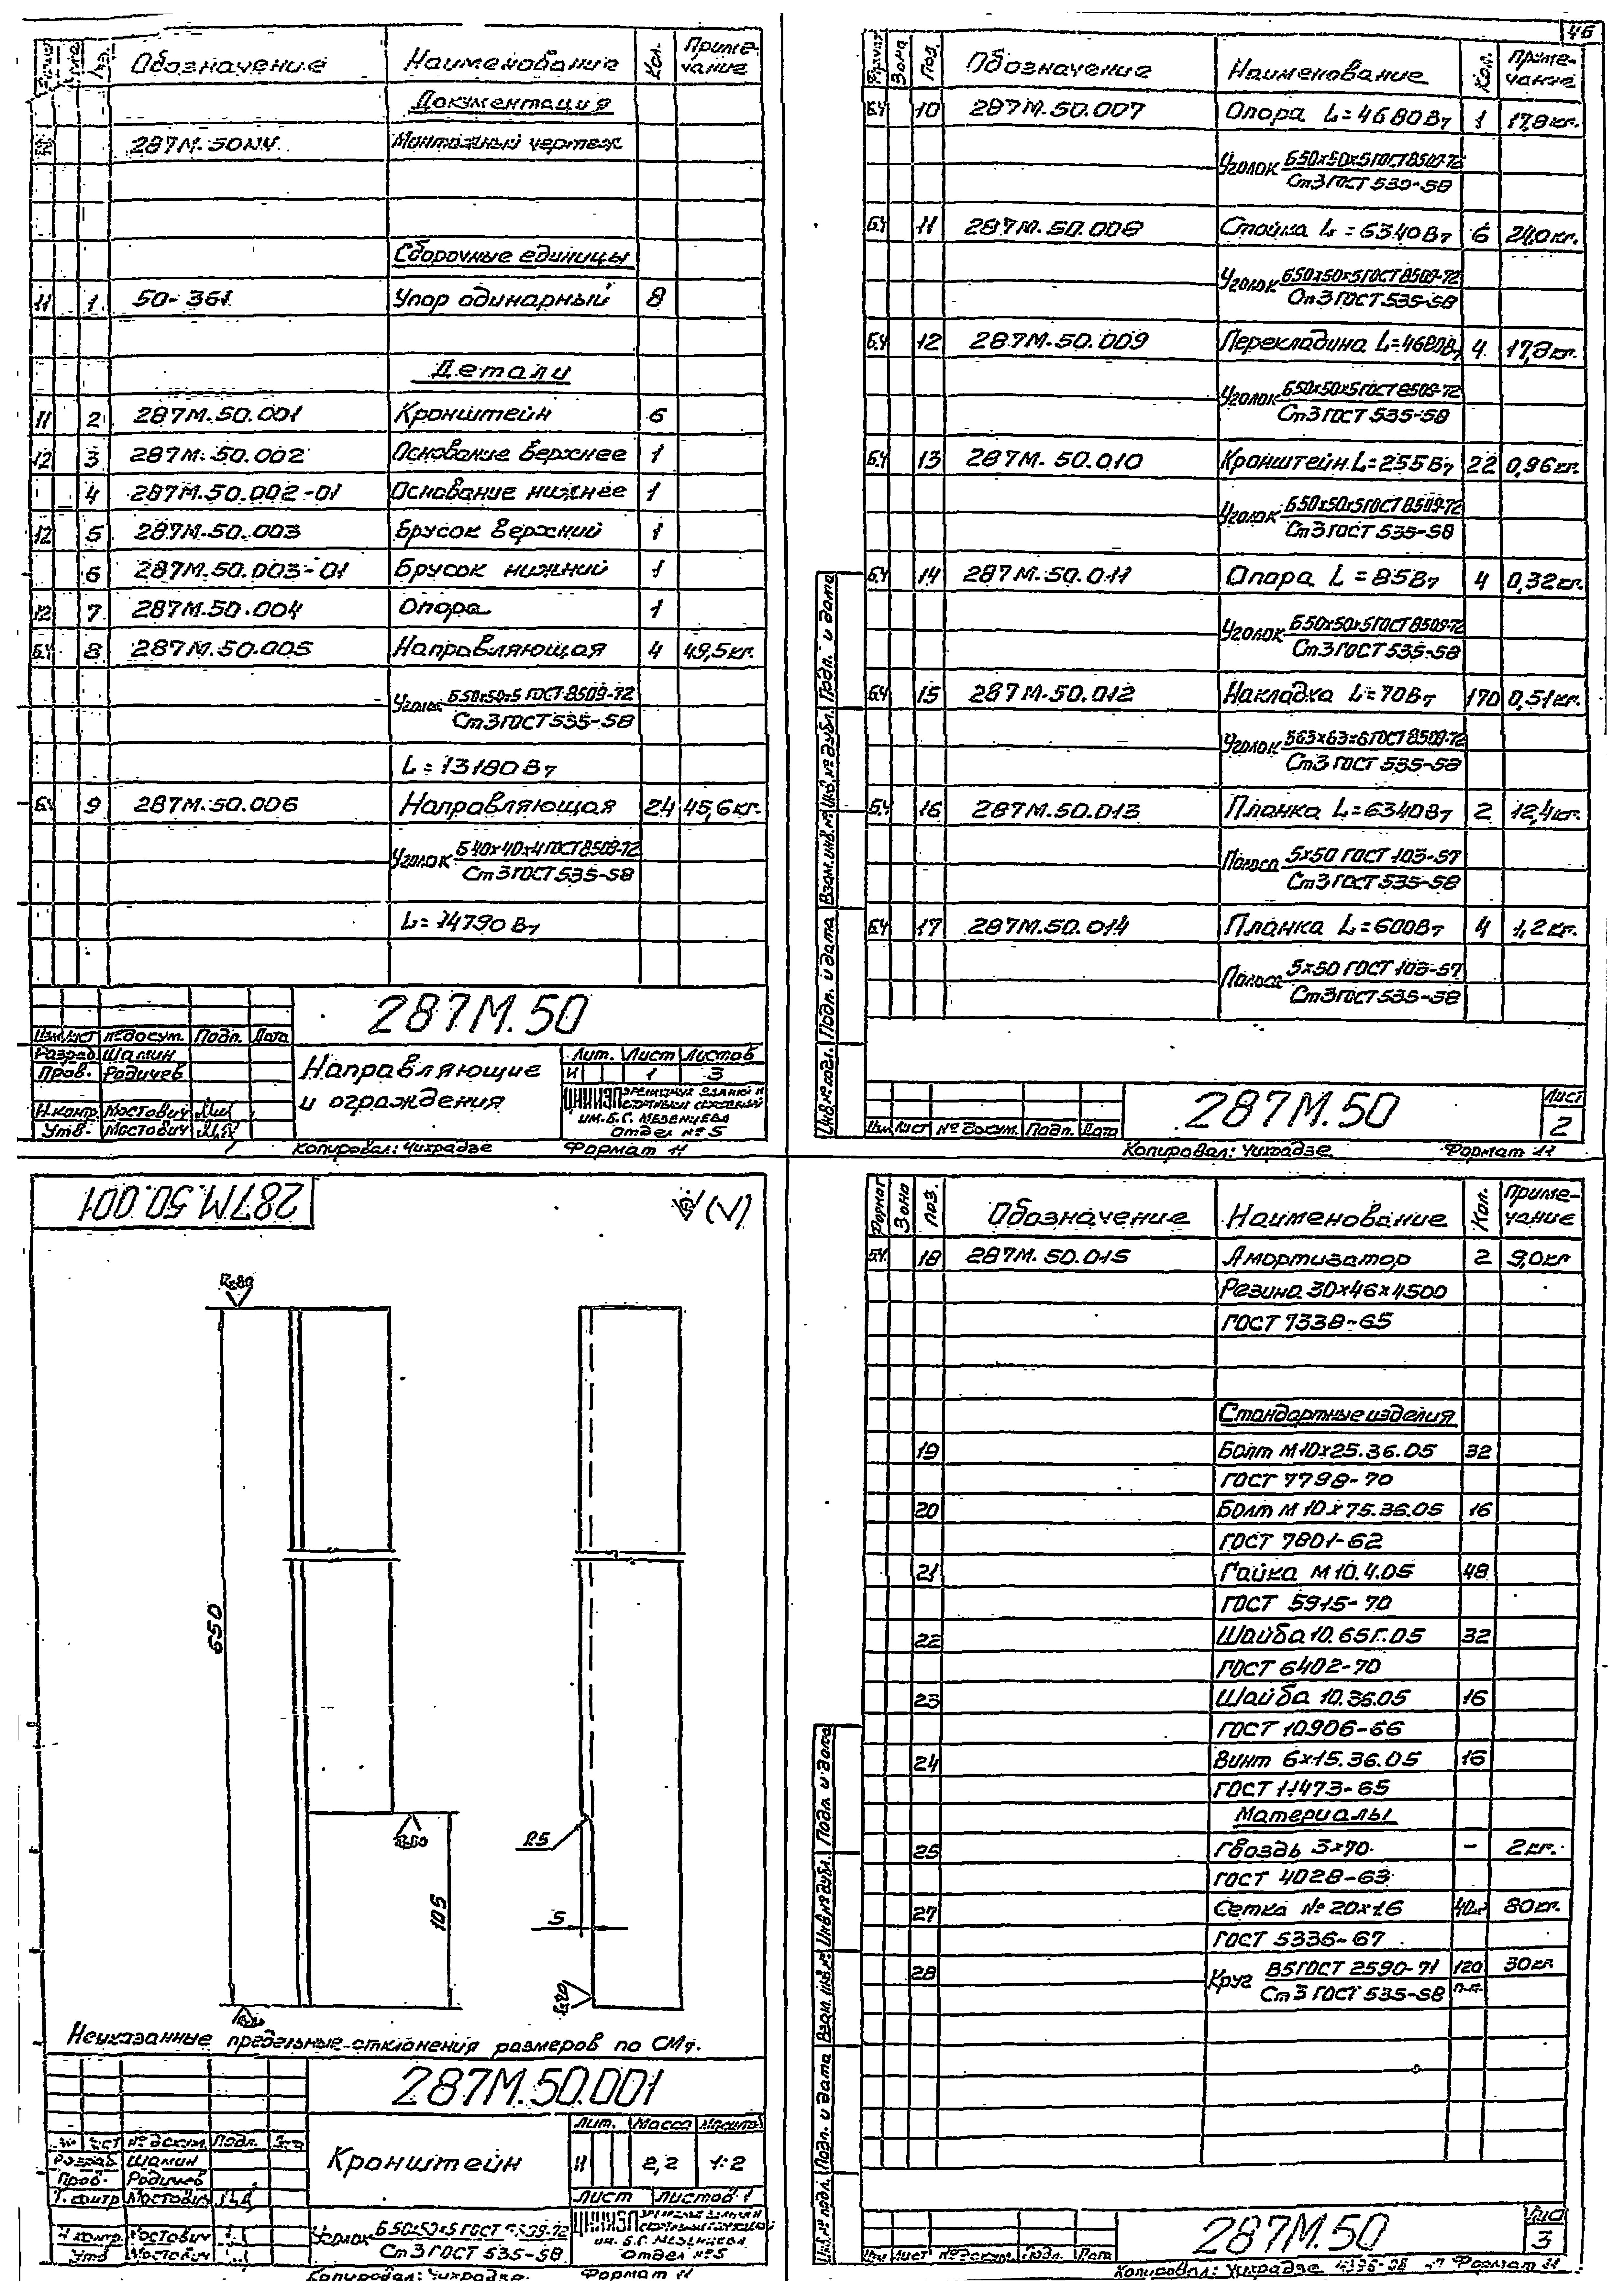 Обозначение Наименование Кол. Примечание
Документация
287М.50МЧ Монтажный чертеж
Сборочные единицы
11 1 50-361 Упор одинарный 8
Детали
11 2 287М.50.001 Кронштейн 6
12 3 287М.50.002 Основание верхнее 1
4 287М.50.002-01 Основание нижнее 1
12 5 287М.50.003 Брусок верхний 1
6 287М.50.003-01 Брусок нижний 1
12 7 287М.50.004 Опора 1
Б.Ч 8 287М.50.005 Направляющая 4 49,5кг.
Уголок Б50х50х5 ГОСТ 8509-72
Ст3 ГОСТ 535-58
L=13180Вт
Б.Ч 9 287М.50.006 Направляющая 24 45,6кг.
Уголок Б40х40х4 ГОСТ 8509-72
Ст3 ГОСТ 535-58
L=14790Вт
287М.50
Изм Лист № докум. Подп. Дата
Разраб Шамин
Пров. Радичев
Н.контр Мостович
Утв. Мостович
Направляющие
и ограждения
Лит. Лист Листов
И 1 3
ЦНИИЭП зрелищных зданий и
спортивных сооружений
им. Б.С. Мезенцева
Отдел №5
Копировал: Чихрадзе Формат 11
46
Формат Зона Поз. Обозначение Наименование Кол. Примечание
Б.Ч 10 287М.50.007 Опора L=4680Вт 1 17,8кг.
Уголок Б50х50х5 ГОСТ 8509-72
Ст3 ГОСТ 535-58
Б.Ч 11 287М.50.008 Стойка L=6340Вт 6 24,0кг.
Уголок Б50х50х5 ГОСТ 8509-72
Ст3 ГОСТ 535-58
Б.Ч 12 287М.50.009 Перекладина L=4680Вт 4 17,8кг.
Уголок Б50х50х5 ГОСТ 8509-72
Ст3 ГОСТ 535-58
Б.Ч 13 287М.50.010 Кронштейн L=255Вт 22 0,96кг.
Уголок Б50х50х5 ГОСТ 8509-72
Ст3 ГОСТ 535-58
Б.Ч 14 287М.50.011 Опора L=85Вт 4 0,32кг.
Уголок Б50х50х5 ГОСТ 8509-72
Ст3 ГОСТ 535-58
Б.Ч 15 287М.50.012 Накладка L=70Вт 170 0,51кг.
Уголок Б63х63х6 ГОСТ 8509-72
Ст3 ГОСТ 535-58
Б.Ч 16 287М.50.013 Планка L=6340Вт 2 12,4кг.
Полоса 5х50 ГОСТ 103-57
Ст3 ГОСТ 535-58
Б.Ч 17 287М.50.014 Планка L=600Вт 4 1,2кг.
Полоса 5х50 ГОСТ 103-57
Ст3 ГОСТ 535-58
Инв.№ подл. Подп. и дата Взам.инв.№ Инв.№ дубл. Подп. и дата
Изм Лист № докум. Подп. Дата
287М.50
Лист
2
Копировал: Чихрадзе Формат 11
287М.50.001
(√)
Rz80
650
Rz80
105
Rz80
R5
5
Rz80
Неуказанные предельные отклонения размеров по СМ7.
287М.50.001
№ докум. Подп.
Разраб Шамин
Пров. Радичев
Т.контр Мостович
Н.контр Мостович
Утв Мостович
Кронштейн
Лит. Масса Масштаб
И 2,2 1:2
Лист Листов 1
Уголок Б50х50х5 ГОСТ 8509-72
Ст3 ГОСТ 535-58
ЦНИИЭП зрелищных зданий и
спортивных сооружений
им. Б.С. Мезенцева
Отдел №5
Копировал: Чихрадзе Формат 11
Формат Зона Поз. Обозначение Наименование Кол. Примечание
Б.Ч 18 287М.50.015 Амортизатор 2 9,0кг
Резина 30х46х4500
ГОСТ 7338-65
Стандартные изделия
19 Болт М10х25.36.05 32
ГОСТ 7798-70
20 Болт М10х75.36.05 16
ГОСТ 7801-62
21 Гайка М10.4.05 48
ГОСТ 5915-70
22 Шайба 10.65Г.05 32
ГОСТ 6402-70
23 Шайба 10.36.05 16
ГОСТ 10906-66
24 Винт 6х15.36.05 16
ГОСТ 11473-65
Материалы
25 Гвоздь 3х70 - 2кг.
ГОСТ 4028-63
27 Сетка № 20х1.6 80кг.
ГОСТ 5336-67
28 Круг В5 ГОСТ 2590-71 120 30кг
Ст3 ГОСТ 535-58 п.м.
Инв.№ подл. Подп. и дата Взам. инв.№ Инв.№ дубл. Подп. и дата
Изм Лист № докум. Подп. Дата
287М.50
Лист
3
Копировал: Чихрадзе Формат 11